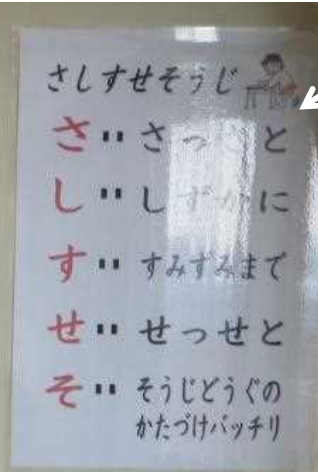 さしすせそうじ
さ‥さっさと
し‥しずかに
す‥すみずみまで
せ‥せっせと
そ‥そうじどうぐの
かたづけバッチリ